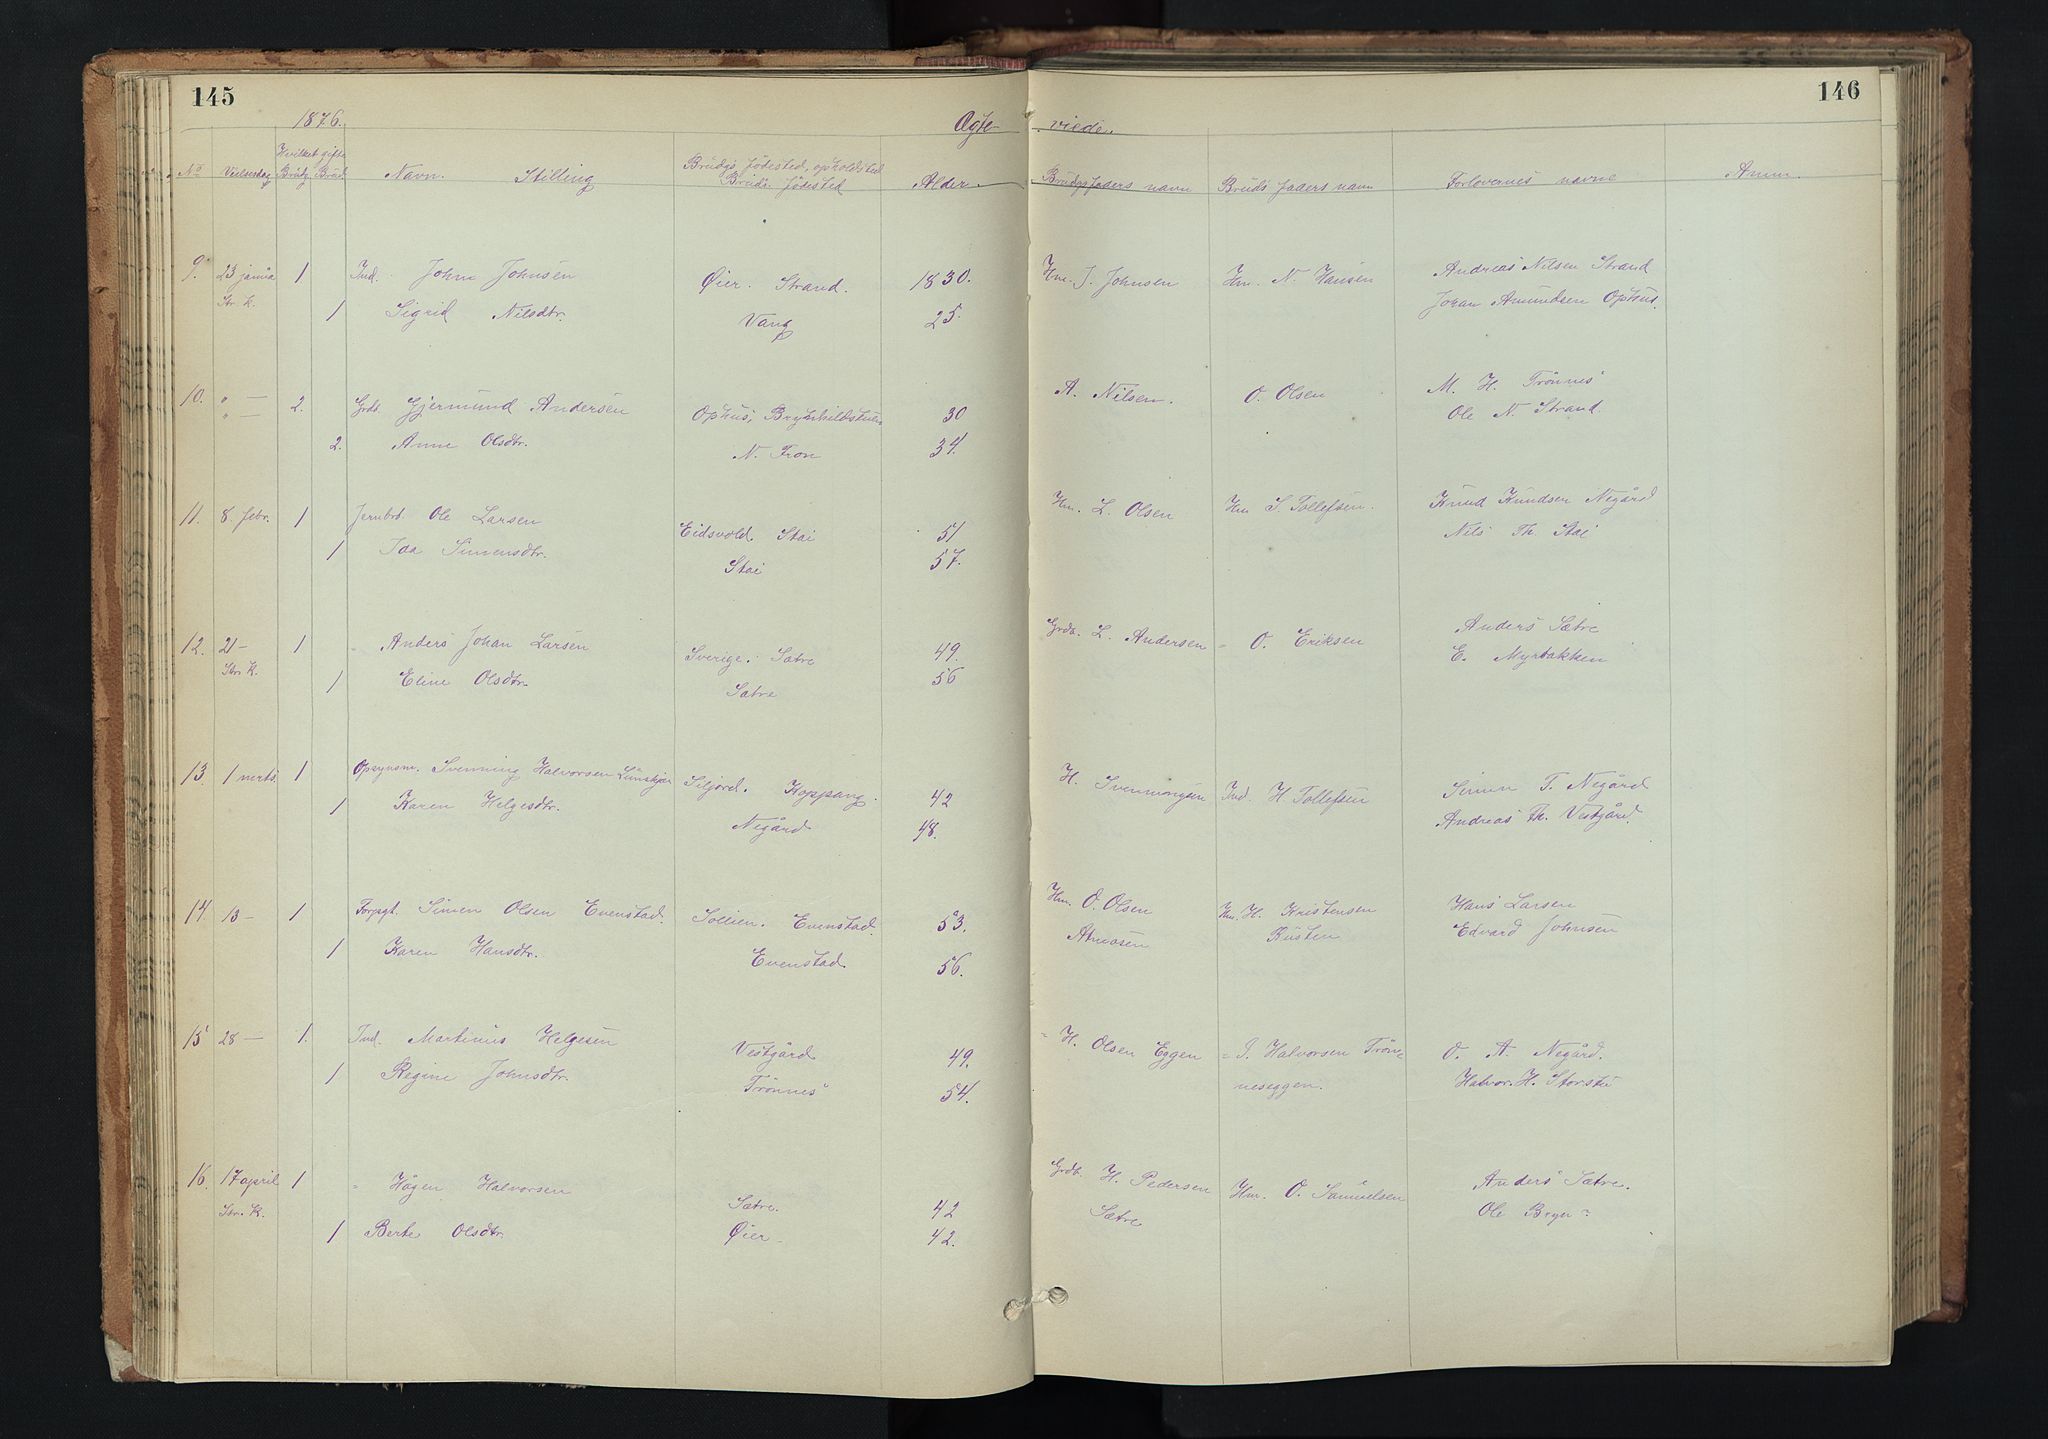 145
146
1876.
Ægte viede.
No Vielsesdag Hvilket gifte Brudg. Brud. Navn. Stilling Brudgs. fødested, opholdsted Bruds fødested Alder. Brudgs faders navn Bruds faders navn Forlovernes navne Anm.
9. 23 janua 1 Ind. John Johnsen Øier. Strand. 1830. Hm. J. Johnsen Hm. N. Hansen Andreas Nilsen Strand
Str. K. 1 Sigrid Nilsdtr. Vang 25. Johan Amundsen Ophus.
10. " — 2. Grdb. Gjermund Andersen Ophus, Brynhildstuen 30 A. Nilsen. O. Olsen M. H. Trönnes
" — 2. Anne Olsdtr. N. Fron 34. Ole N. Strand.
11. 8 febr. 1 Jernbrd. Ole Larsen Eidsvold. Stai 51 Hm. L. Olsen Hm S. Tollefsen. Knud Knudsen Negård
1 Ida Simensdtr. Stai 57. Nils Th. Stai
12. 21 — 1 " Anders Johan Larsen Sverige. Sætre 49. Grdb. L. Andersen = O. Eriksen Anders Sætre
Str. K. 1 Eline Olsdtr. Sætre 56 E. Myrbakken
13 1 merts. 1 Opsynsm. Svenning Halvorsen Siljord. Koppang. 42 H. Svenningsen Ind. H Tollefsen Simen T. Negård
1 Karen Helgesdtr. Negård 48. Andreas Th. Vestgård.
14. 13 — 1 Forpgt. Simen Olsen Evenstad. Sollien. Evenstad. 53. Hm. O. Olsen Hm. H. Kristensen Hans Larsen
1 Karen Hansdtr. Evenstad. 56. Atneosen Rusten Edvard Johnsen
15 28 — 1. Ind. Martinus Helgesen Vestgård 49. = H. Olsen Eggen = J. Halvorsen Trön= O. A. Negård.
1 Regine Johnsdtr. Trönnes 54. neseggen. Halvor. H. Storstu
16. 17 april 1 " Hågen Halvorsen Sætre. 42 Grdb. H. Pedersen Hm. O. Samuelsen Anders Sætre.
Str. K. 1 Berte Olsdtr. Øier. 42. Sætre Ole Bryn